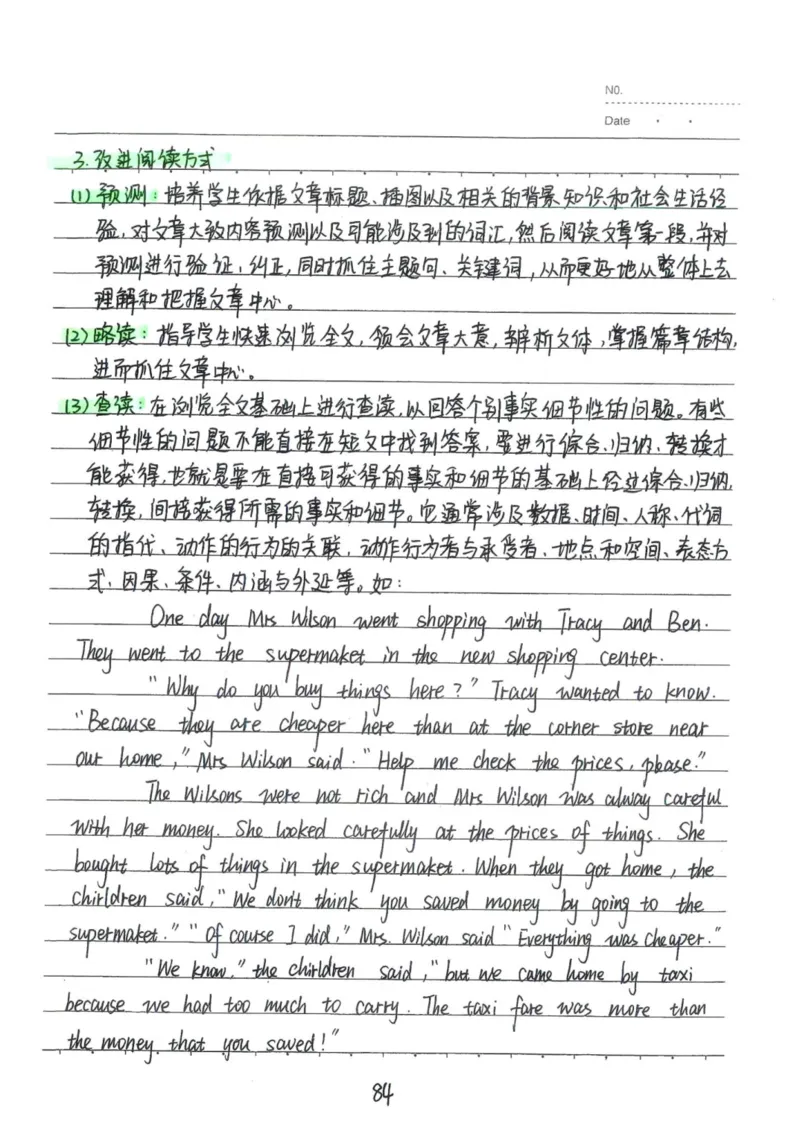 NO.
Date
3.改进阅读方式
(1)预测:培养学生依据文章标题、插图以及相关的背景知识和社会生活经
验,对文章大致内容预测以及可能涉及到的词汇,然后阅读文章第一段,并对
预测进行验证,纠正,同时抓住主题句、关键词,从而更好地从整体上去
理解和把握文章中心。
(2)略读:指导学生快速浏览全文,领会文章大意,辨析文体,掌握篇章结构,
进而抓住文章中心。
(3)查读:在浏览全文基础上进行查读,以回答个别事实细节性的问题。有些
细节性的问题不能直接在短文中找到答案,要进行综合、归纳、转换才
能获得,也就是要在直接可获得的事实和细节的基础上经过综合、归纳,
转换,间接获得所需的事实和细节。它通常涉及数据、时间、人称、代词
的指代、动作的行为的关联,动作行为者与承受者、地点和空间、表态方
式、因果、条件、内涵与外延等。如:
One day Mrs Wilson went shopping with Tracy and Ben.
They went to the supermaket in the new shopping center.
"Why do you buy things here?" Tracy wanted to know.
"Because they are cheaper here than at the corner store near
our home," Mrs Wilson said. "Help me check the prices, please."
The Wilsons were not rich and Mrs Wilson was alway careful
with her money. She looked carefully at the prices of things. She
bought lots of things in the supermaket. When they got home, the
chirldren said, "We don't think you saved money by going to the
supermaket." "Of course I did," Mrs. Wilson said "Everything was cheaper."
"We know," the chirldren said, "but we came home by taxi
because we had too much to carry. The taxi fare was more than
the money that you saved!"
84